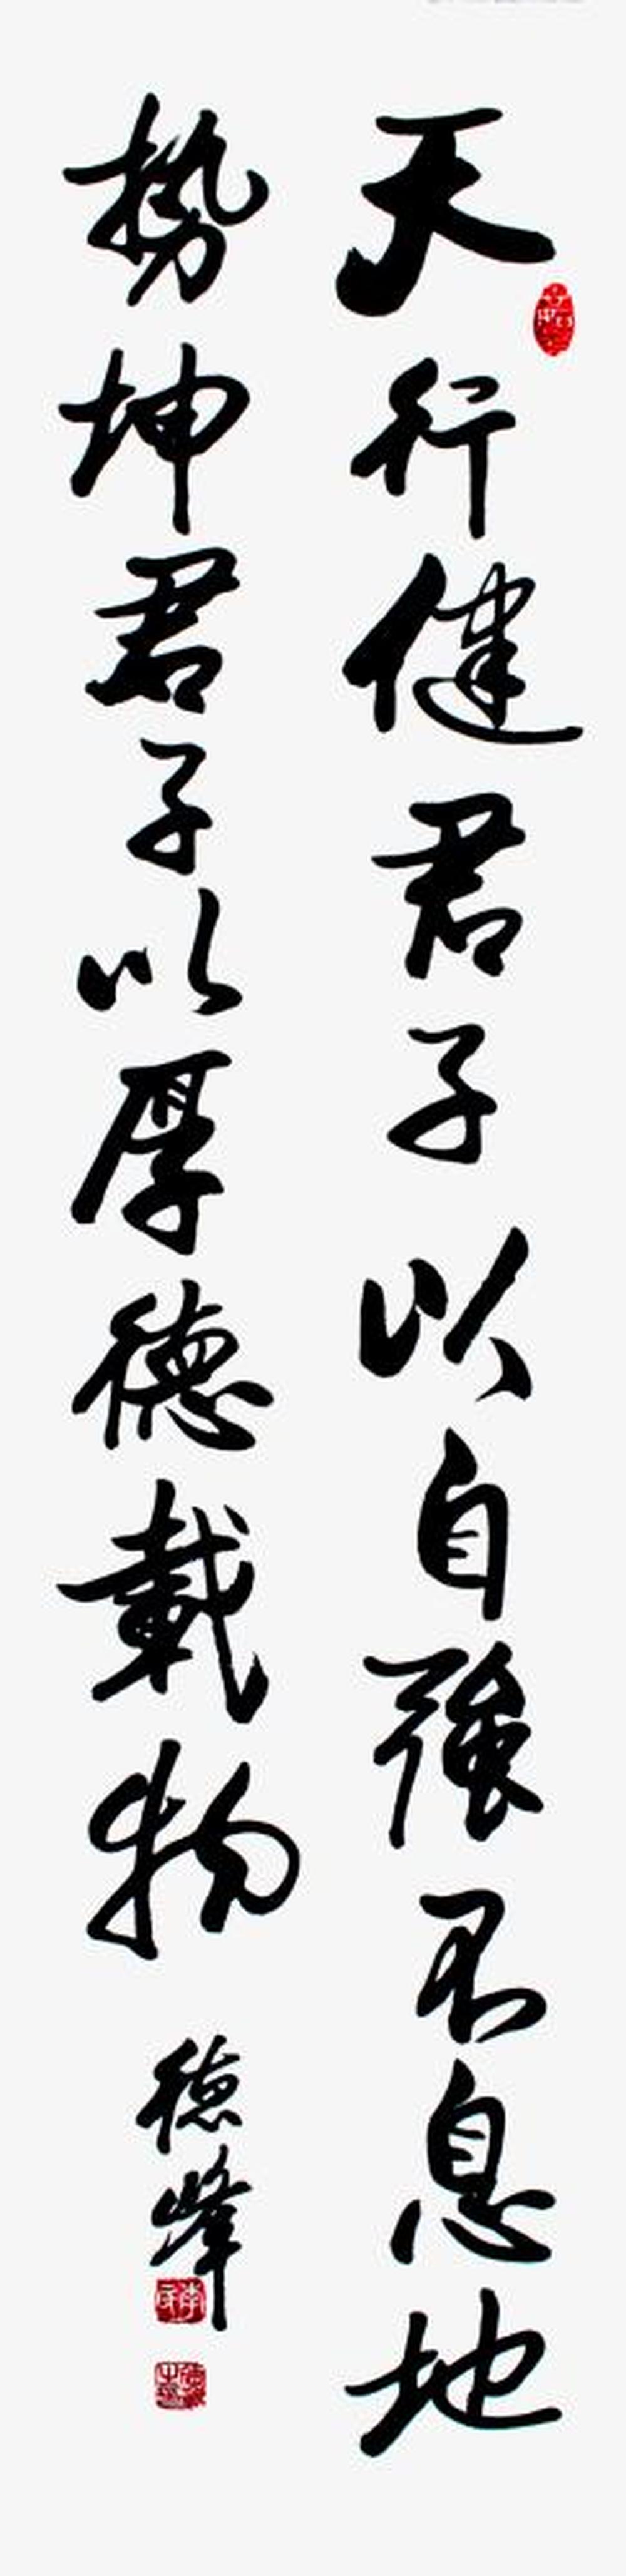 天行健君子以自強不息地
勢坤君子以厚德載物
德峰